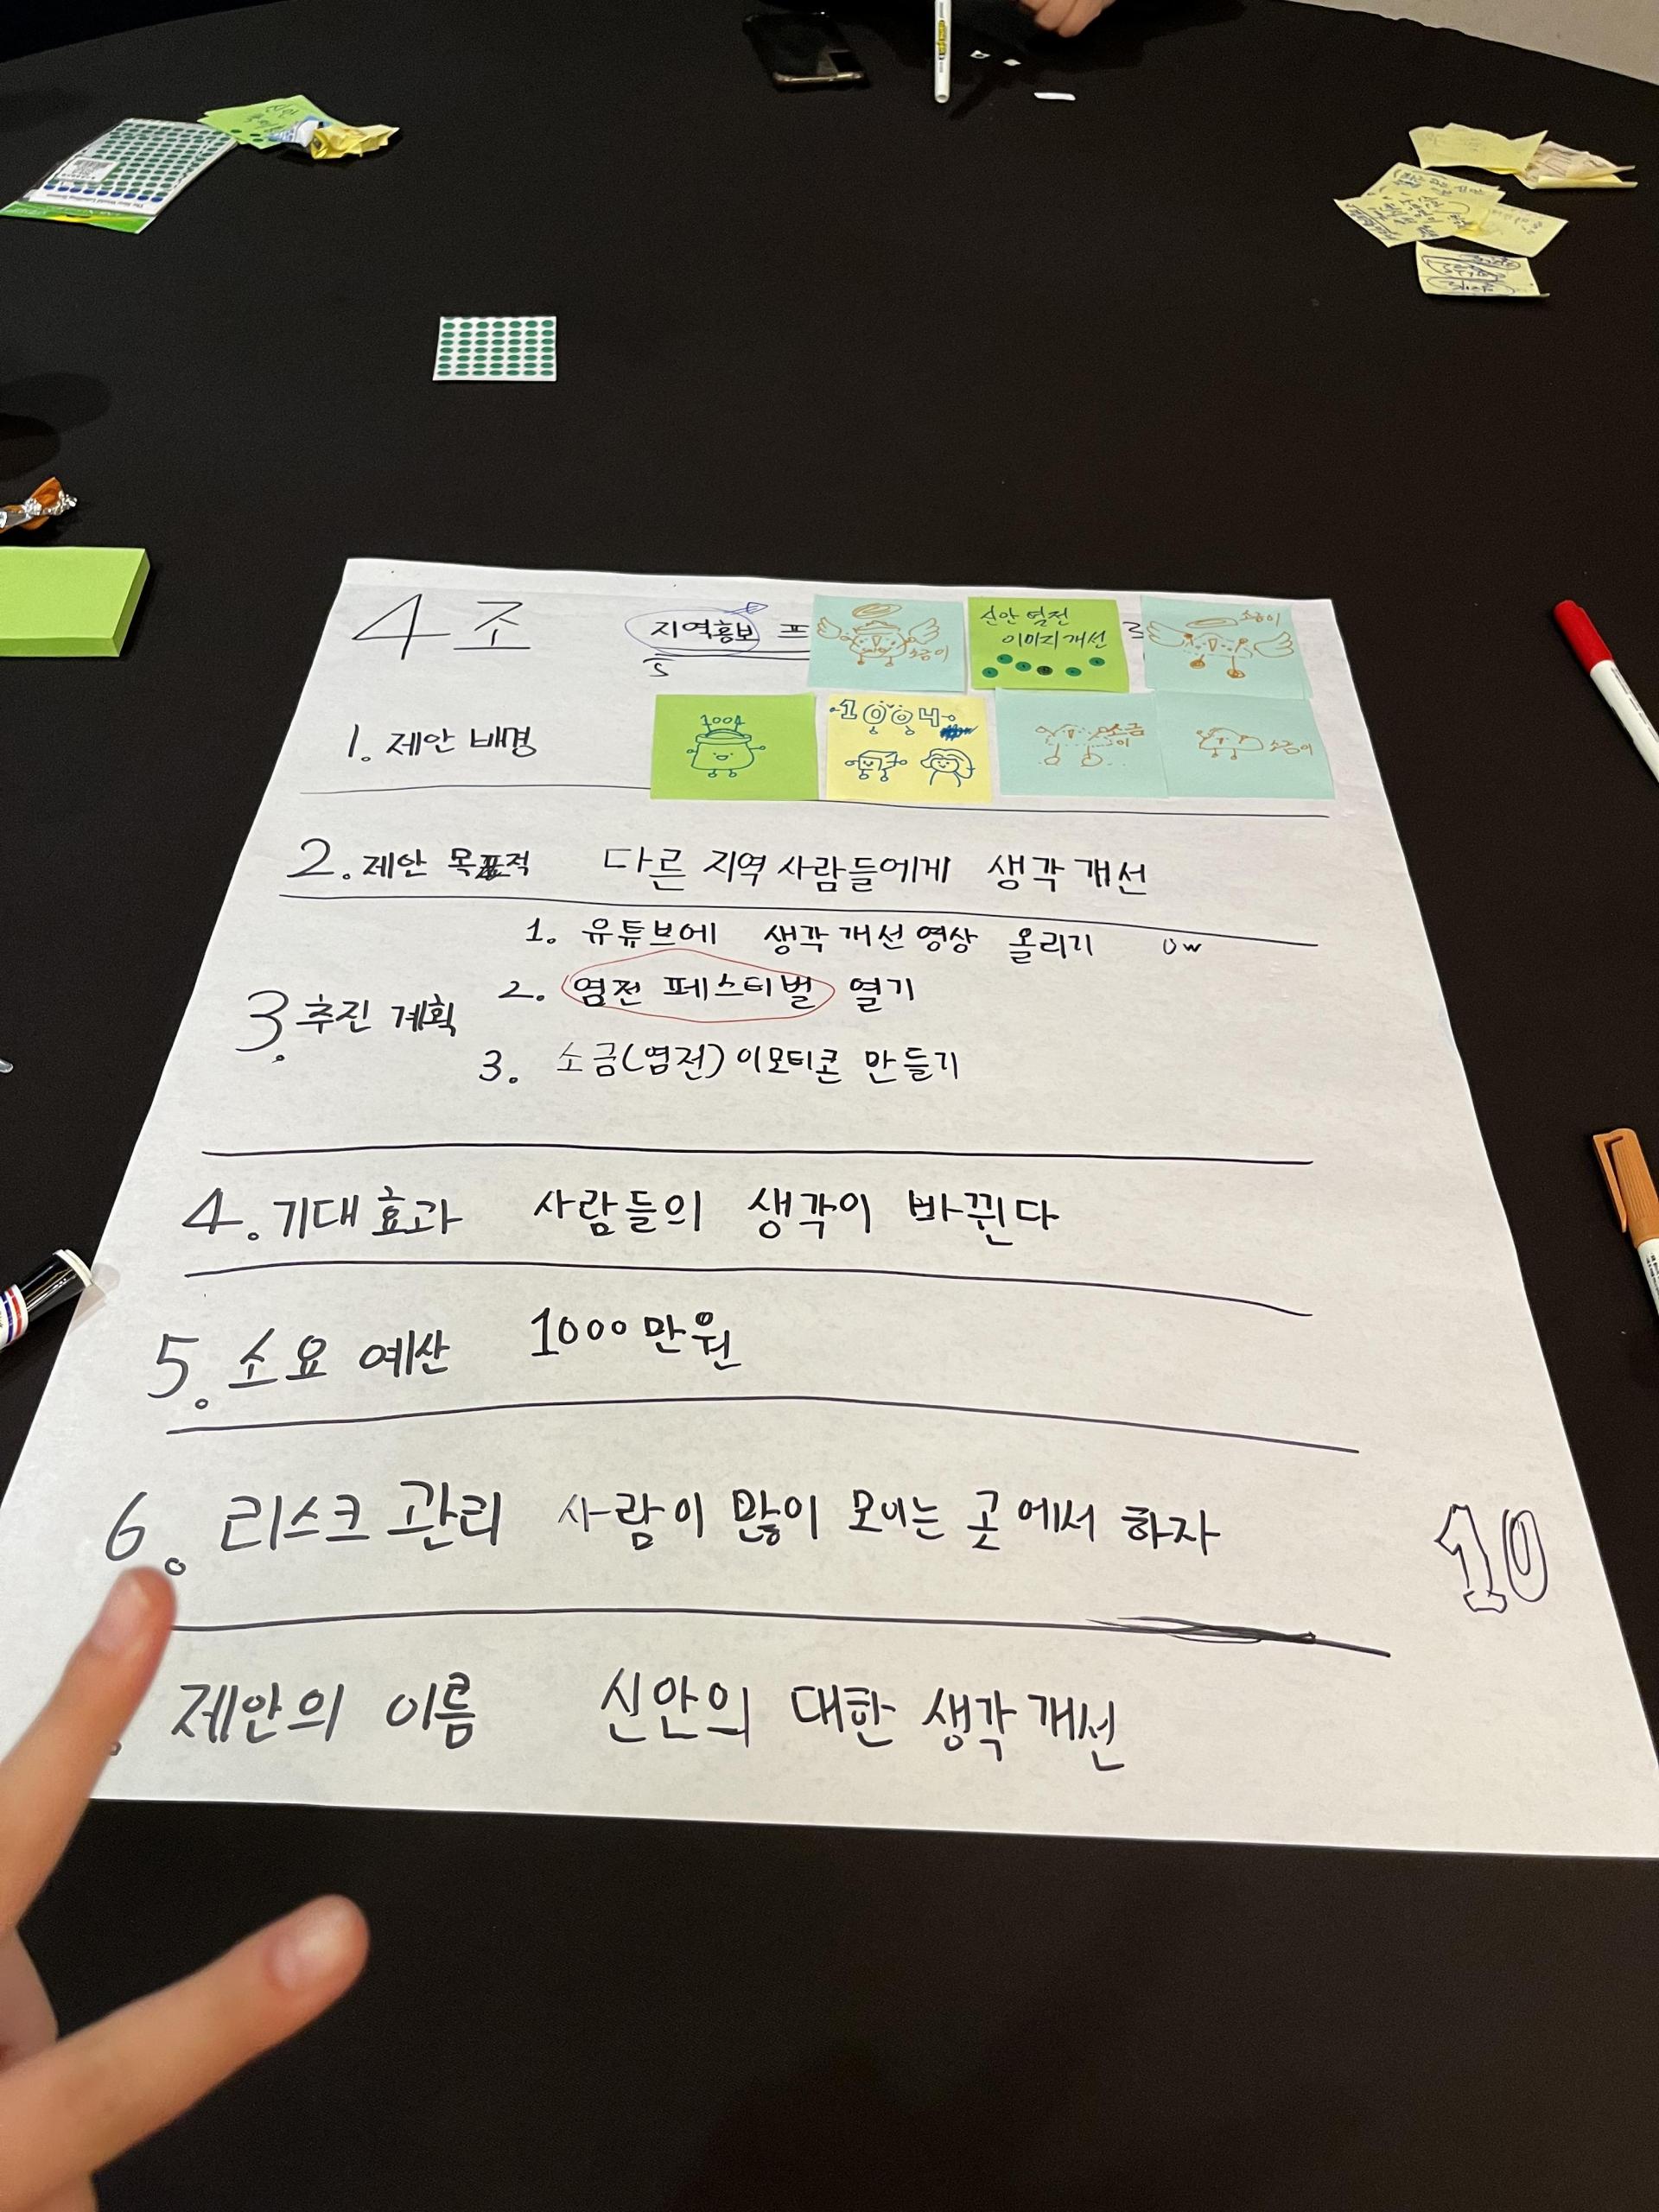 4조 지역홍보 프
소금이
신안 염전
이미지 개선
소금이
1. 제안 배경
1004
1004
소금이
소금이
2. 제안 목적 다른 지역 사람들에게 생각 개선
3. 추진 계획
1. 유튜브에 생각 개선 영상 올리기
2. 염전 페스티벌 열기
3. 소금(염전) 이모티콘 만들기
4. 기대 효과 사람들의 생각이 바뀐다
5. 소요 예산 1000만원
6. 리스크 관리 사람이 많이 모이는 곳에서 하자
10
제안의 이름 신안의 대한 생각 개선